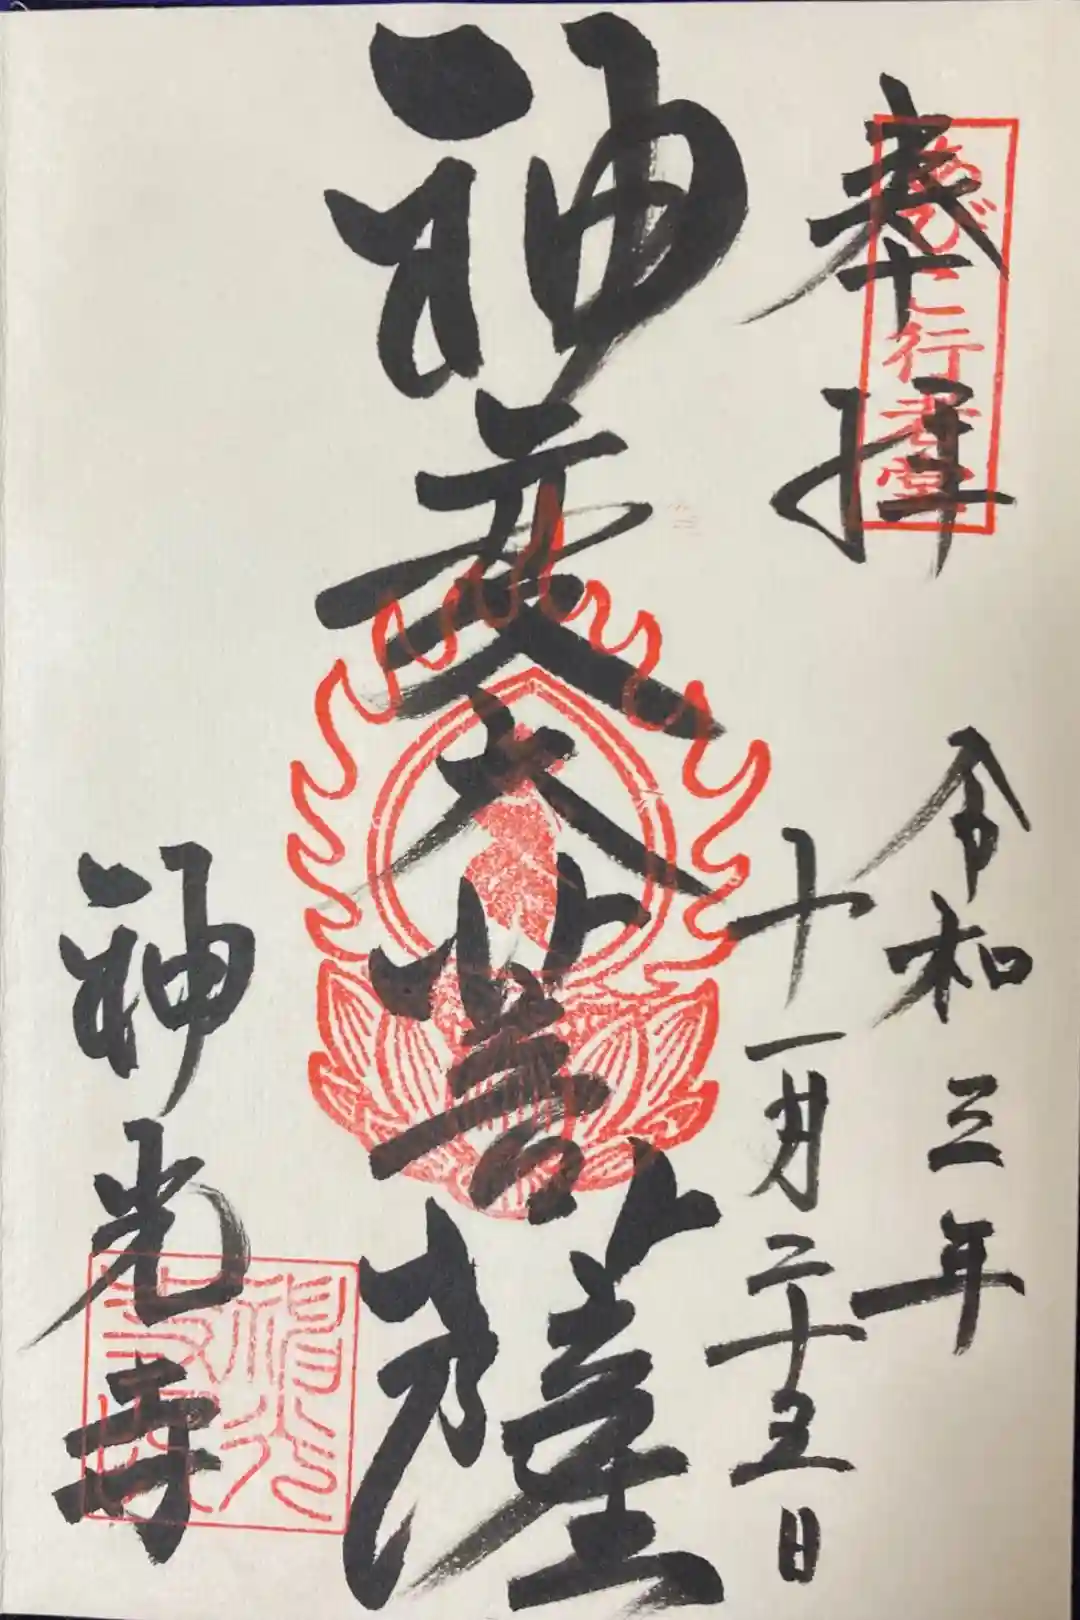 奉拝
あびこ行者堂
令和三年
十一月二十五日
神変大菩薩
神光寺